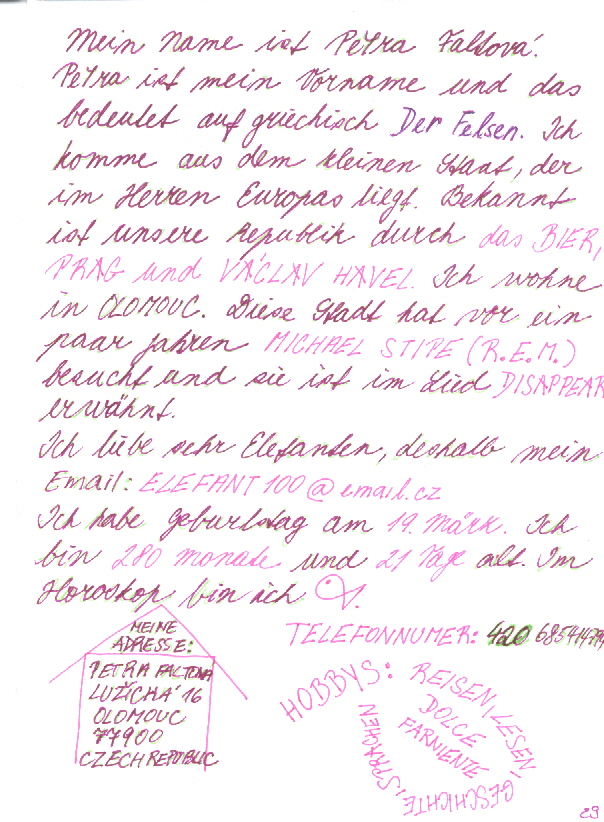 Mein Name ist Petra Faltová.
Petra ist mein Vorname und das
bedeutet auf griechisch Der Felsen. Ich
komme aus dem kleinen Staat, der
im Herren Europas liegt. Bekannt
ist unsere Republik durch das BIER,
PRAG und VÁCLAV HAVEL. Ich wohne
in OLOMOUC. Diese Stadt hat vor ein
paar jahren MICHAEL STIPE (R.E.M.)
besucht und sie ist im Lied DISAPPEAR
erwähnt.
Ich liebe sehr Elefanten, deshalb mein
Email: ELEFANT100@email.cz
Ich habe geburtstag am 19. Märk. Ich
bin 280 monate und 21 Tage alt. Im
Horoskop bin ich
MEINE
ADRESSE:
PETRA FALTOVA
LUŽICKÁ 16
OLOMOUC
77900
CZECH REPUBLIC
TELEFONNUMER: 420
HOBBYS: REISEN, LESEN,
GESCHICHTE, SPRACHEN
DOLCE
FARNIENTE
29